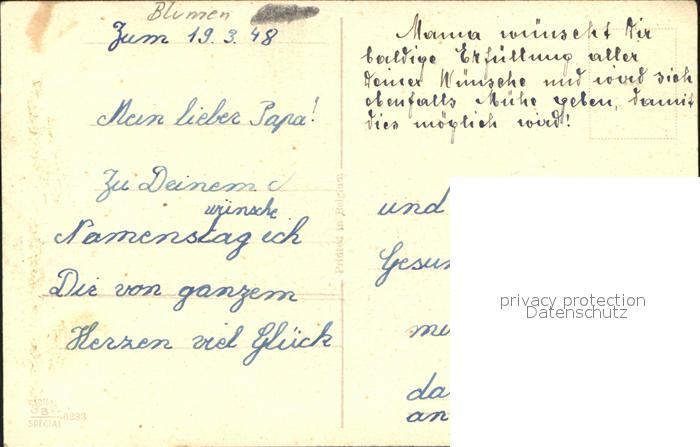 Blumen
Zum 19.3.48
Mein lieber Papa!
Zu Deinem
wünsche
Namenstag ich
Dir von ganzem
Herzen viel Glück
Mama wünscht Dir
baldige Erfüllung aller
Deiner Wünsche und wird sich
ebenfalls Mühe geben, damit
dies möglich wird!
und
Gesun
me
da
an
Printed in Belgium
B
SPECIAL
privacy protection
Datenschutz